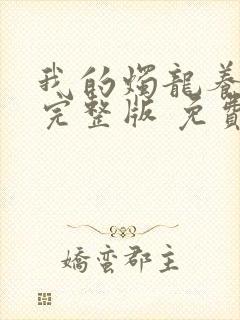 我的燭龍養
完整版 免費
嬌蠻郡主